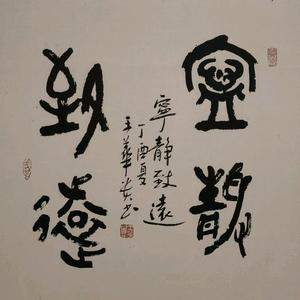 寧靜
致遠
寧靜致遠
丁酉夏
王華英书